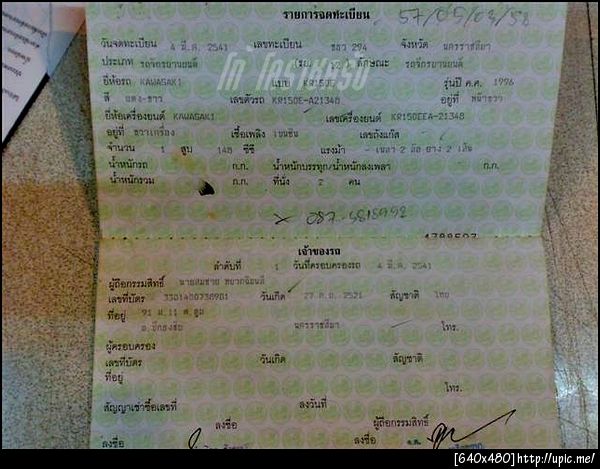 รายการจดทะเบียน
วันจดทะเบียน 4 มี.ค. 2541 เลขทะเบียน 294 จังหวัด นครราชสีมา
ประเภท รถจักรยานยนต์ ลักษณะ รถจักรยานยนต์
ยี่ห้อรถ KAWASAKI แบบ KR150E รุ่นปี ค.ศ. 1996
สี แดง-ขาว เลขตัวรถ KR150E-A21348 อยู่ที่ หน้าขวา
ยี่ห้อเครื่องยนต์ KAWASAKI เลขเครื่องยนต์ KR150EEA-21348
อยู่ที่ ขวาเครื่อง เชื้อเพลิง เบนซิน เลขถังแก๊ส
จำนวน 1 สูบ 148 ซีซี แรงม้า - เพลา 2 ล้อ ยาง 2 เส้น
น้ำหนักรถ ก.ก. น้ำหนักบรรทุก/น้ำหนักลงเพลา ก.ก.
น้ำหนักรวม ก.ก. ที่นั่ง 2 คน
เจ้าของรถ
ลำดับที่ 1 วันที่ครอบครองรถ 4 มี.ค. 2541
ผู้ถือกรรมสิทธิ์ นายสมชาย
เลขที่บัตร วันเกิด 27 ก.ย. 2521 สัญชาติ ไทย
ที่อยู่ 91 ม.11
อ.ปักธงชัย นครราชสีมา โทร.
ผู้ครอบครอง
เลขที่บัตร วันเกิด สัญชาติ
ที่อยู่ โทร.
สัญญาเช่าซื้อเลขที่ ลงวันที่
ลงชื่อ ผู้ถือกรรมสิทธิ์
ลงชื่อ ลงชื่อ
[640x480]http://upic.me/